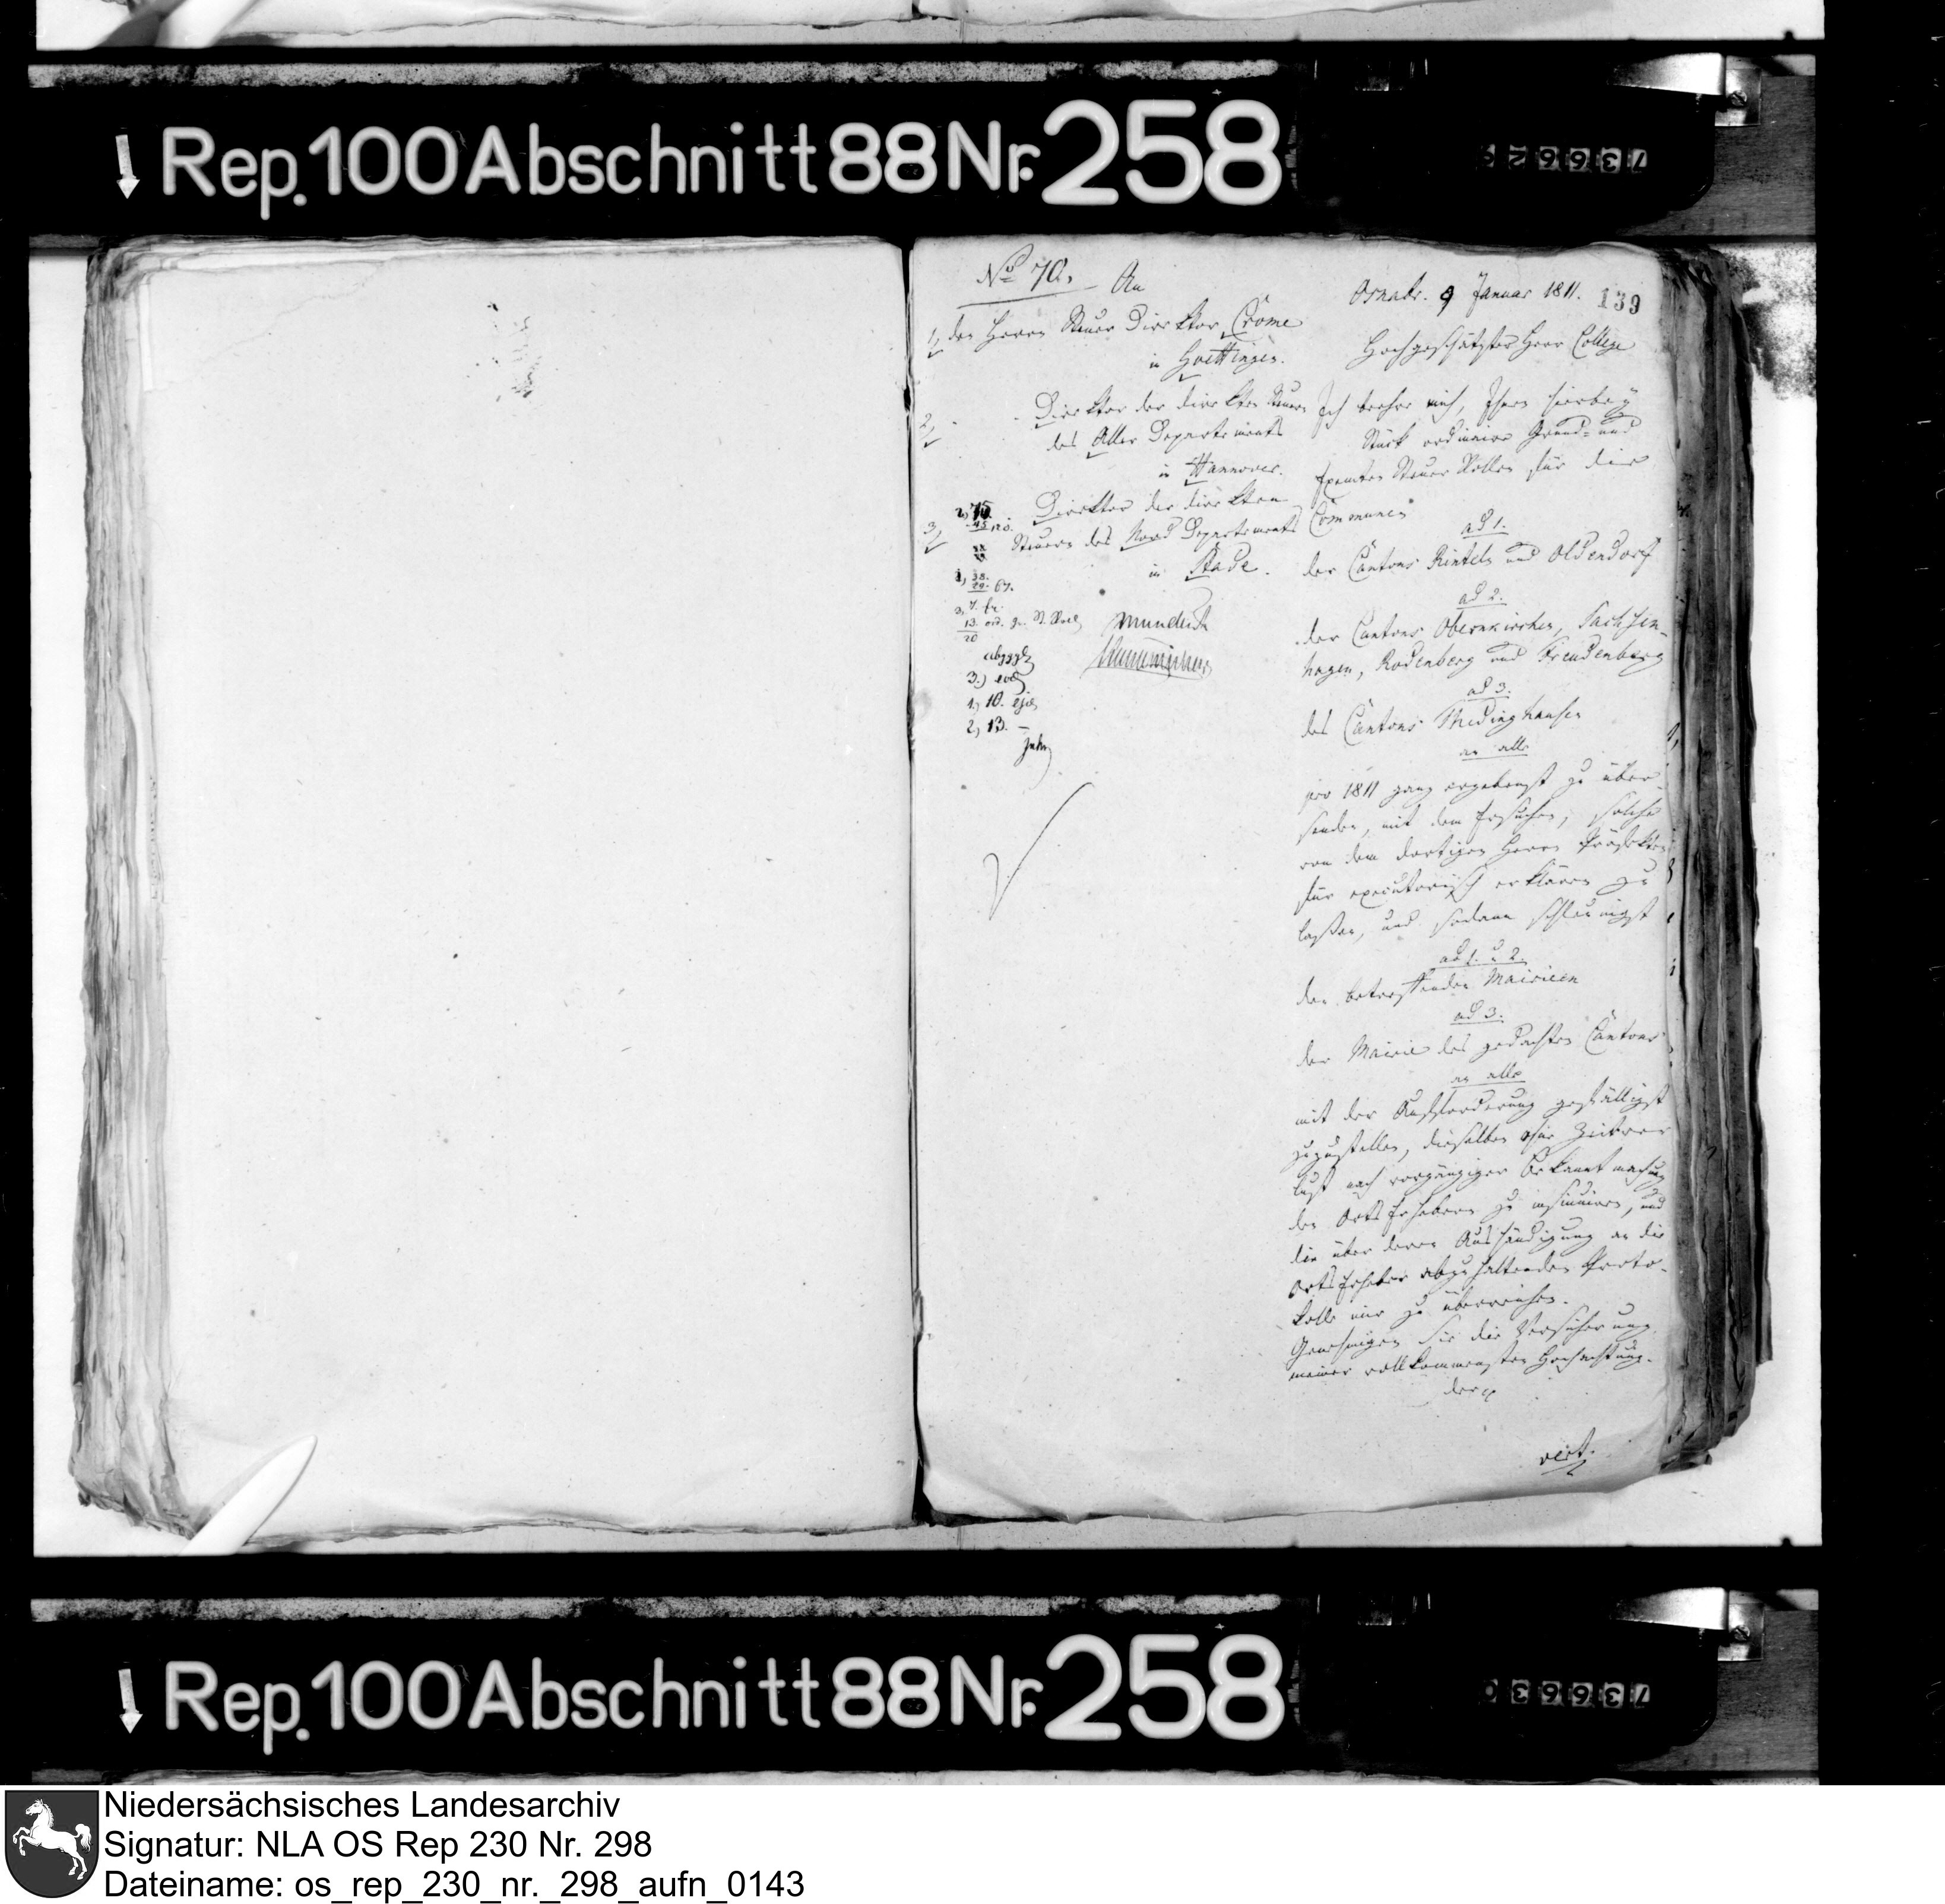 Rep. 100 Abschnitt 88 Nr. 258
No 70.
An
1, den Herrn Steuer Direktor Crome
in Goettingen.
2, - Direktor der direkten Steuern
des Aller Departements
in Hannover.
3, Direktor der direkten
Steuern des Nord Departements
in Stade.
mundirt
abggl
3.) eod
1.) 10. ejd
2.) 13. –
Osnabr. 9 Januar 1811.
139
Hochgeschätzter Herr College
Ich beehre mich, Ihnen hierbey
Stück ordinaire Grund- und
Exemten Steuer Rollen für die
Communen
ad 1.
der Cantons Rinteln und Oldendorf
ad 2.
der Cantons Obernkirchen, Sachsen-
hagen, Rodenberg und Freudenberg
ad 3.
des Cantons Thedinghausen
an alle
pro 1811 ganz ergebenst zu über-
senden, mit dem Ersuchen, solche
von dem dortigen Herrn Präfekten
für executorisch erklären zu
laßen, und sodann schleunigst
ad 1. u 2.
den betreffenden Mairieen
ad 3.
der Mairie des gedachten Cantons
an alle
mit der Aufforderung gefälligst
zuzustellen, dieselben ohne Zeitver-
lust nach vorgängiger Bekanntmachung
den Orts Erhebern zu insinuiren, und
die über deren Aushändigung an die
Orts Erheber abzuhaltenden Proto-
kolle mir zu überreichen.
Genehmigen Sie die Versicherung
meiner vollkommensten Hochachtung.
der
vert.
Rep. 100 Abschnitt 88 Nr. 258
Niedersächsisches Landesarchiv
Signatur: NLA OS Rep 230 Nr. 298
Dateiname: os_rep_230_nr._298_aufn_0143